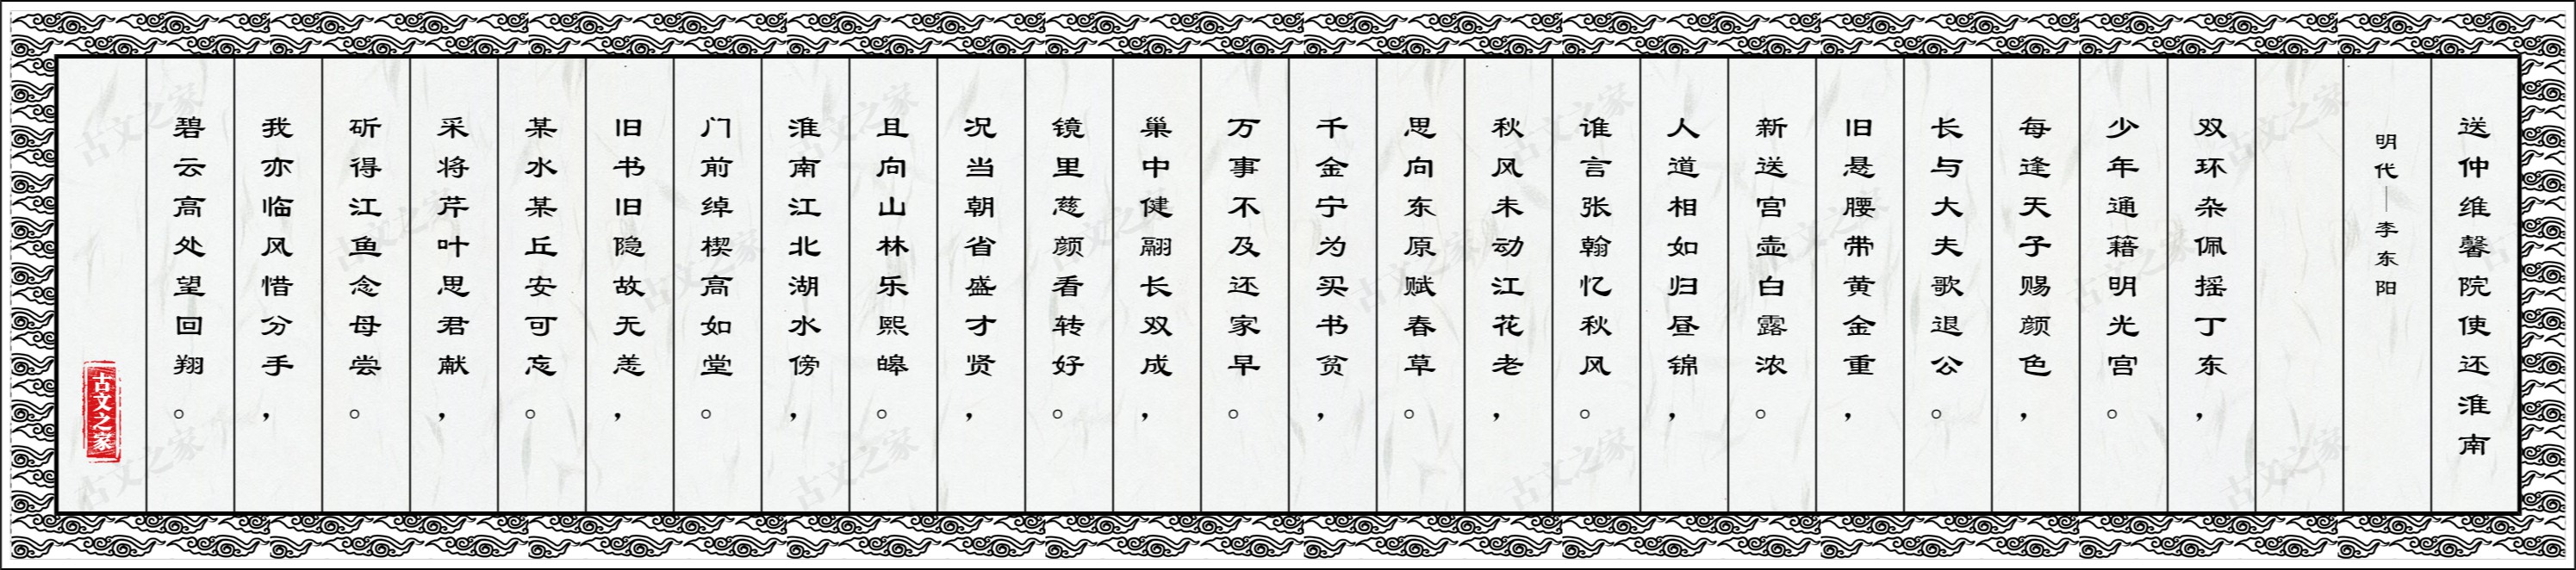 送仲维馨院使还淮南
明代—李东阳
双环杂佩摇丁东，
少年通籍明光宫。
每逢天子赐颜色，
长与大夫歌退公。
旧悬腰带黄金重，
新送宫壶白露浓。
人道相如归昼锦，
谁言张翰忆秋风。
秋风未动江花老，
思向东原赋春草。
千金宁为买书贫，
万事不及还家早。
巢中健翮长双成，
镜里慈颜看转好。
况当朝省盛才贤，
且向山林乐熙皞。
淮南江北湖水傍，
门前绰楔高如堂。
旧书旧隐故无恙，
某水某丘安可忘。
采将芹叶思君献，
斫得江鱼念母尝。
我亦临风惜分手，
碧云高处望回翔。
古文之家